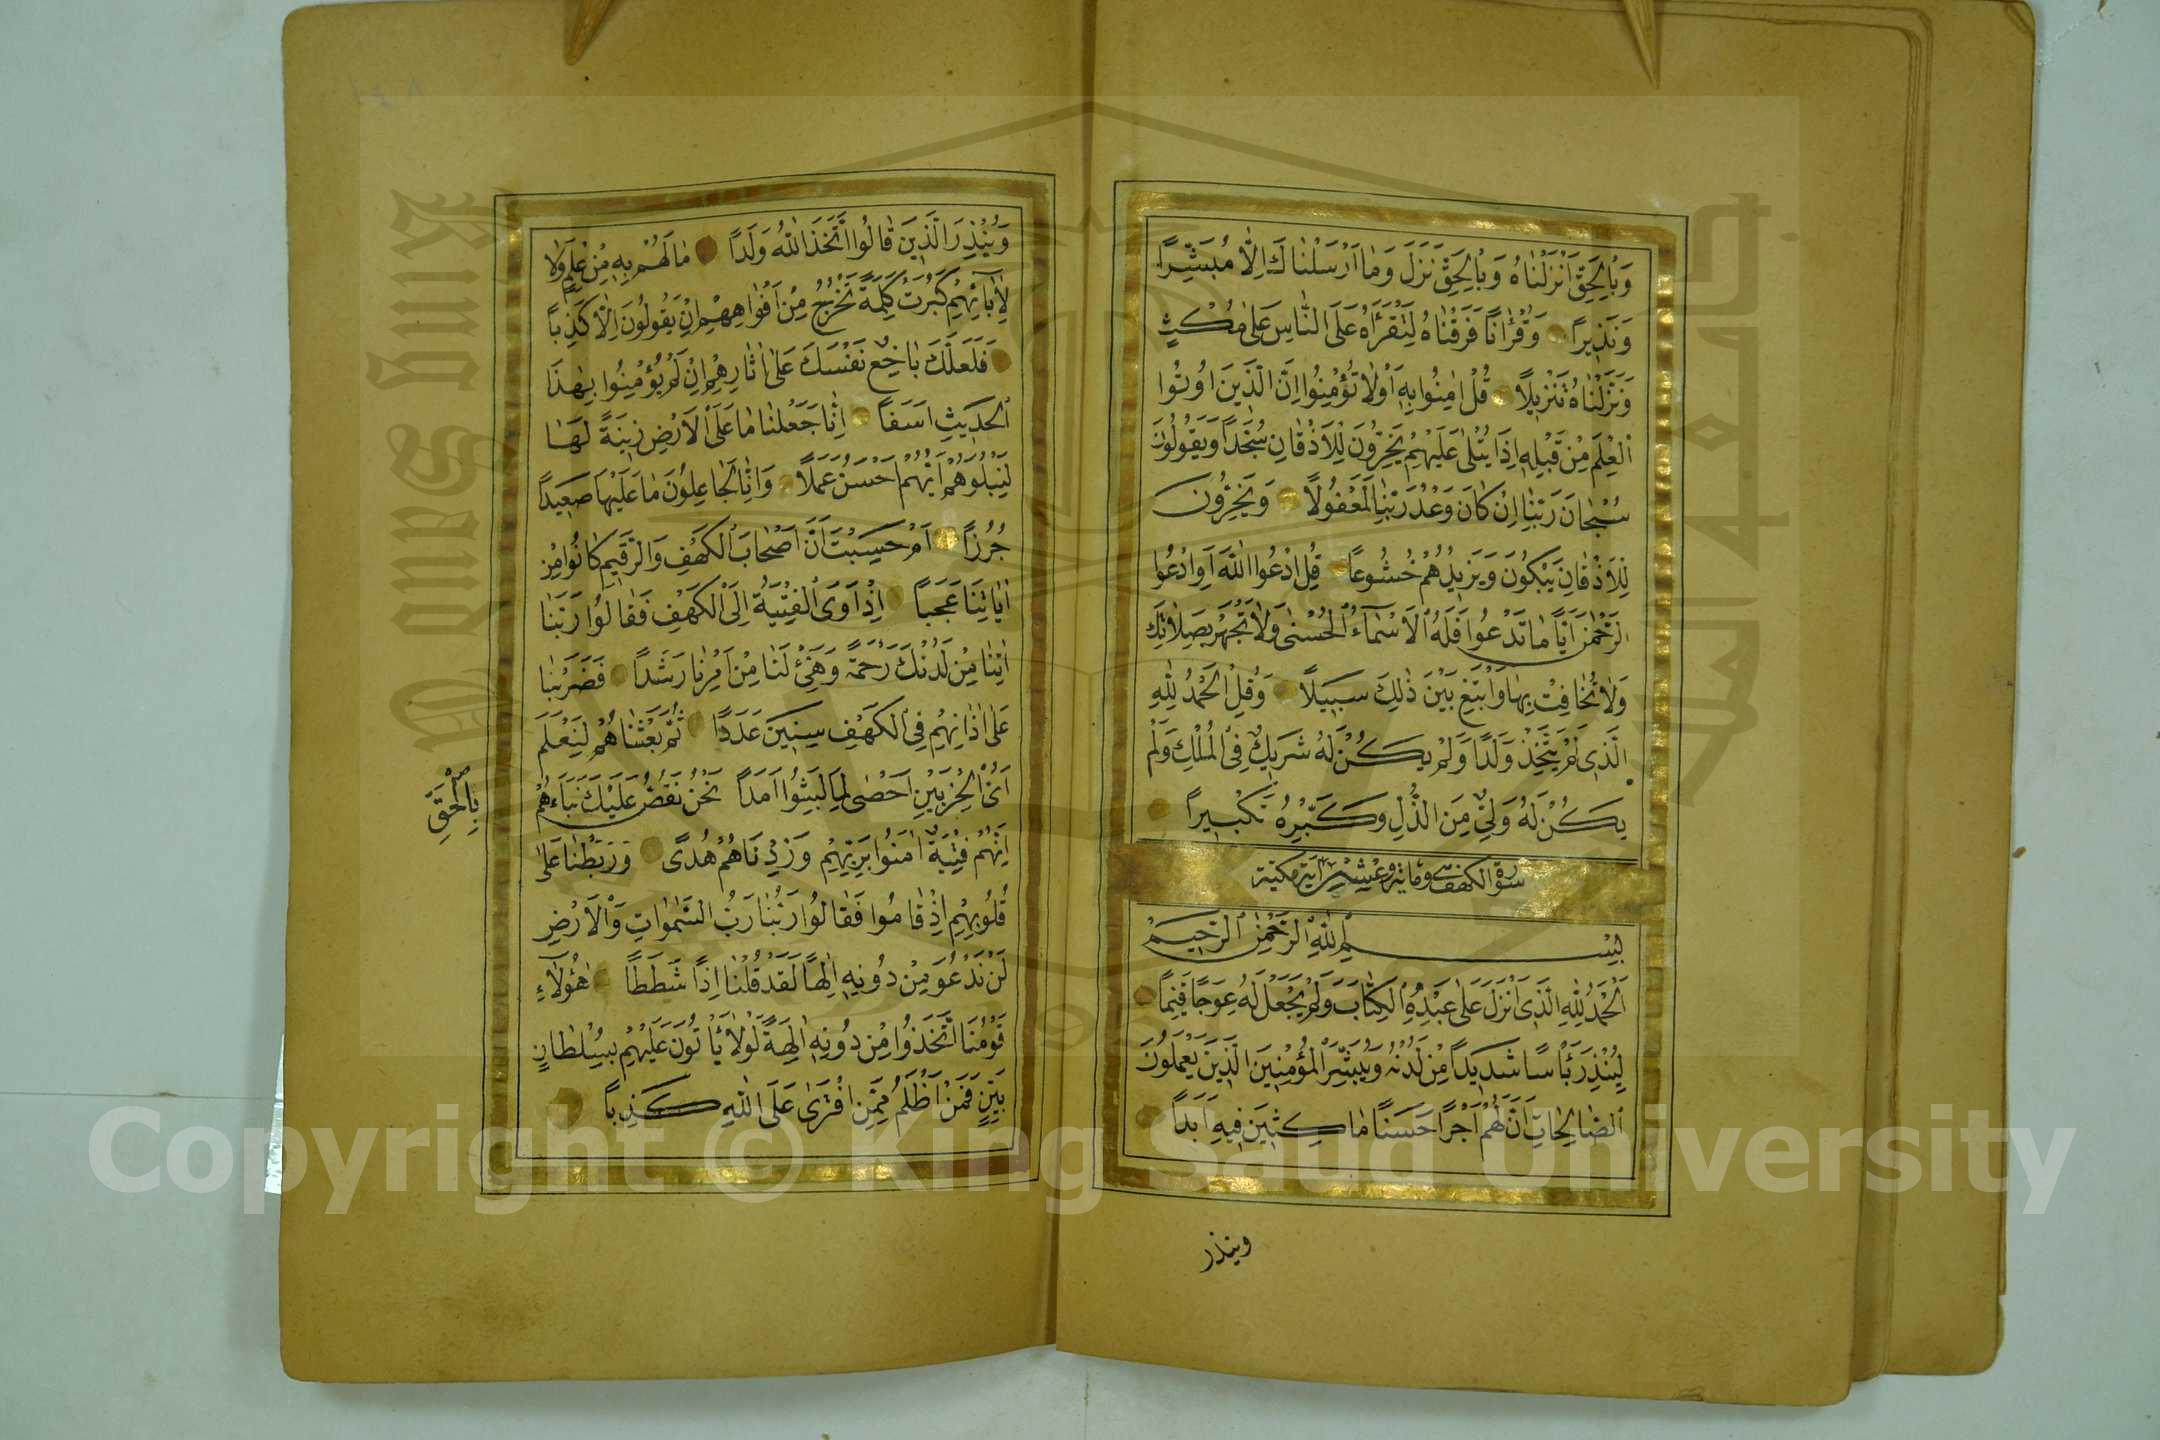 وَبِالْحَقِّ اَنْزَلْنَاهُ وَبِالْحَقِّ نَزَلَ وَمَا اَرْسَلْنَاكَ اِلَّا مُبَشِّرًا
وَنَذِيرًا وَقُرْاٰنًا فَرَقْنَاهُ لِتَقْرَاَهُ عَلَى النَّاسِ عَلٰى مُكْثٍ
وَنَزَّلْنَاهُ تَنْزِيلًا قُلْ اٰمِنُوا بِهِ اَوْ لَا تُؤْمِنُوا اِنَّ الَّذِينَ اُوتُوا
الْعِلْمَ مِنْ قَبْلِهِ اِذَا يُتْلٰى عَلَيْهِمْ يَخِرُّونَ لِلْاَذْقَانِ سُجَّدًا وَيَقُولُونَ
سُبْحَانَ رَبِّنَا اِنْ كَانَ وَعْدُ رَبِّنَا لَمَفْعُولًا وَيَخِرُّونَ
لِلْاَذْقَانِ يَبْكُونَ وَيَزِيدُهُمْ خُشُوعًا قُلِ ادْعُوا اللّٰهَ اَوِ ادْعُوا
الرَّحْمٰنَ اَيًّا مَا تَدْعُوا فَلَهُ الْاَسْمَآءُ الْحُسْنٰى وَلَا تَجْهَرْ بِصَلَاتِكَ
وَلَا تُخَافِتْ بِهَا وَابْتَغِ بَيْنَ ذٰلِكَ سَبِيلًا وَقُلِ الْحَمْدُ لِلّٰهِ
الَّذِى لَمْ يَتَّخِذْ وَلَدًا وَلَمْ يَكُنْ لَهُ شَرِيكٌ فِى الْمُلْكِ وَلَمْ
يَكُنْ لَهُ وَلِىٌّ مِنَ الذُّلِّ وَكَبِّرْهُ تَكْبِيرًا
سورة الكهف وهى مائة وعشر اية مكية
بِسْمِ اللّٰهِ الرَّحْمٰنِ الرَّحِيمِ
اَلْحَمْدُ لِلّٰهِ الَّذِى اَنْزَلَ عَلٰى عَبْدِهِ الْكِتَابَ وَلَمْ يَجْعَلْ لَهُ عِوَجًا قَيِّمًا
لِيُنْذِرَ بَأْسًا شَدِيدًا مِنْ لَدُنْهُ وَيُبَشِّرَ الْمُؤْمِنِينَ الَّذِينَ يَعْمَلُونَ
الصَّالِحَاتِ اَنَّ لَهُمْ اَجْرًا حَسَنًا مَاكِثِينَ فِيهِ اَبَدًا
وينذر
وَيُنْذِرَ الَّذِينَ قَالُوا اتَّخَذَ اللّٰهُ وَلَدًا مَا لَهُمْ بِهِ مِنْ عِلْمٍ وَلَا
لِاٰبَآئِهِمْ كَبُرَتْ كَلِمَةً تَخْرُجُ مِنْ اَفْوَاهِهِمْ اِنْ يَقُولُونَ اِلَّا كَذِبًا
فَلَعَلَّكَ بَاخِعٌ نَفْسَكَ عَلٰى اٰثَارِهِمْ اِنْ لَمْ يُؤْمِنُوا بِهٰذَا
الْحَدِيثِ اَسَفًا اِنَّا جَعَلْنَا مَا عَلَى الْاَرْضِ زِينَةً لَهَا
لِنَبْلُوَهُمْ اَيُّهُمْ اَحْسَنُ عَمَلًا وَاِنَّا لَجَاعِلُونَ مَا عَلَيْهَا صَعِيدًا
جُرُزًا اَمْ حَسِبْتَ اَنَّ اَصْحَابَ الْكَهْفِ وَالرَّقِيمِ كَانُوا مِنْ
اٰيَاتِنَا عَجَبًا اِذْ اَوَى الْفِتْيَةُ اِلَى الْكَهْفِ فَقَالُوا رَبَّنَا
اٰتِنَا مِنْ لَدُنْكَ رَحْمَةً وَهَيِّئْ لَنَا مِنْ اَمْرِنَا رَشَدًا فَضَرَبْنَا
عَلٰى اٰذَانِهِمْ فِى الْكَهْفِ سِنِينَ عَدَدًا ثُمَّ بَعَثْنَاهُمْ لِنَعْلَمَ
اَىُّ الْحِزْبَيْنِ اَحْصٰى لِمَا لَبِثُوا اَمَدًا نَحْنُ نَقُصُّ عَلَيْكَ نَبَاَهُمْ
بِالْحَقِّ
اِنَّهُمْ فِتْيَةٌ اٰمَنُوا بِرَبِّهِمْ وَزِدْنَاهُمْ هُدًى وَرَبَطْنَا عَلٰى
قُلُوبِهِمْ اِذْ قَامُوا فَقَالُوا رَبُّنَا رَبُّ السَّمٰوَاتِ وَالْاَرْضِ
لَنْ نَدْعُوَ مِنْ دُونِهِ اِلٰهًا لَقَدْ قُلْنَا اِذًا شَطَطًا هٰؤُلَاءِ
قَوْمُنَا اتَّخَذُوا مِنْ دُونِهِ اٰلِهَةً لَوْلَا يَأْتُونَ عَلَيْهِمْ بِسُلْطَانٍ
بَيِّنٍ فَمَنْ اَظْلَمُ مِمَّنِ افْتَرٰى عَلَى اللّٰهِ كَذِبًا
Copyright © King Saud University